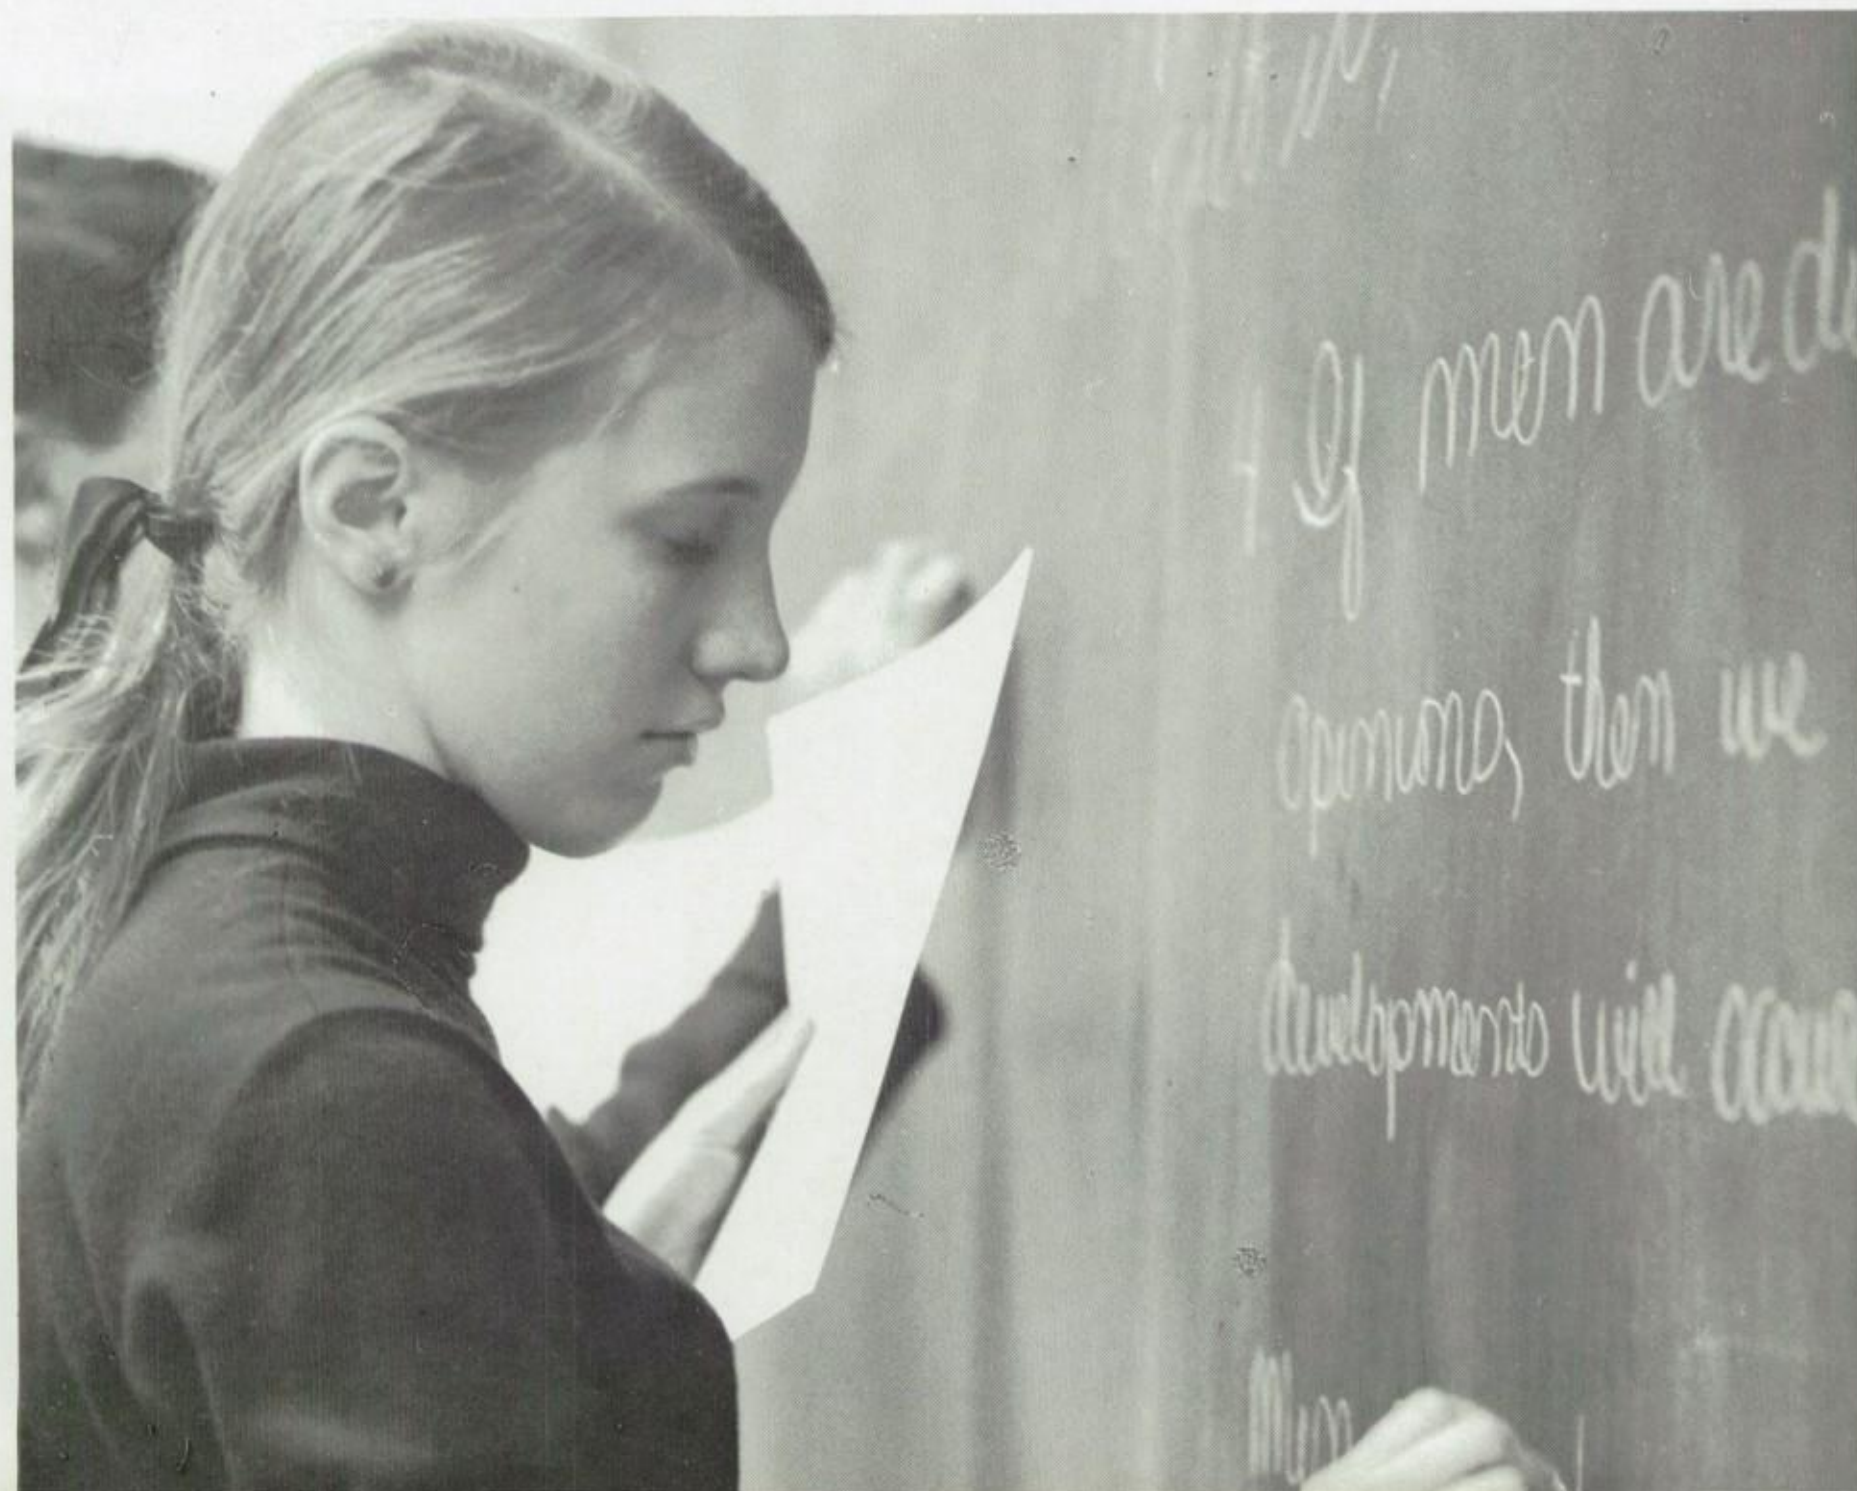 If men are
opinions, then we
developments will
Men